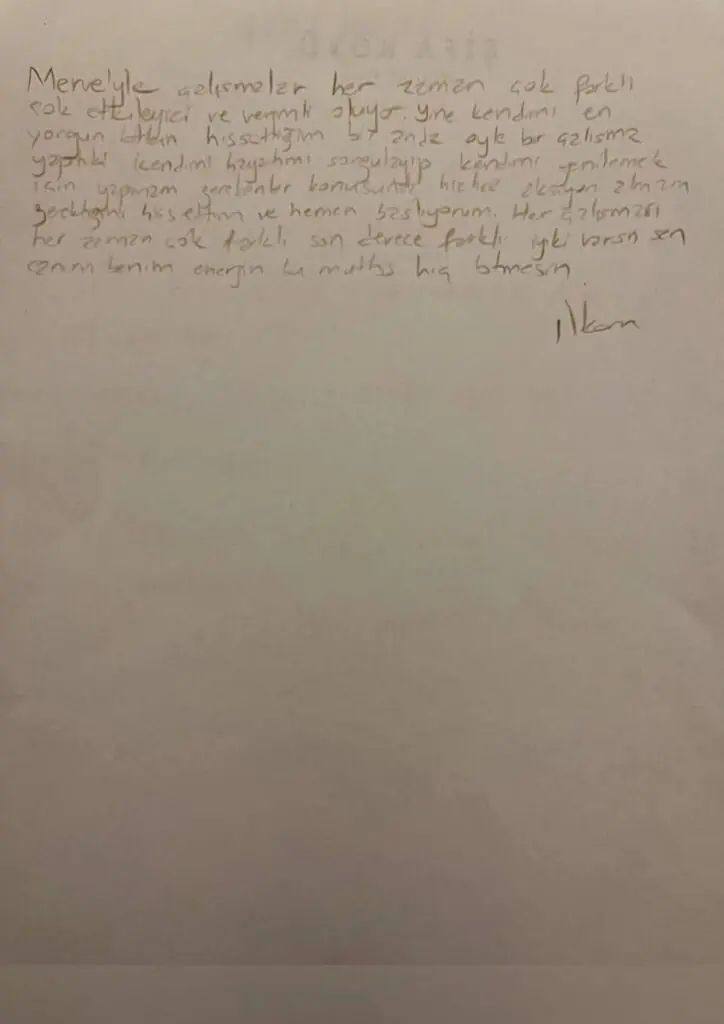 Merve'yle çalışmalar her zaman çok farklı
çok etkileyici ve verimli oluyor. Yine kendimi en
yorgun bitkin hissettiğim bir anda öyle bir çalışma
yaptıki kendimi hayatımı sorgulayıp kendimi yenilemek
için yapmam gerekenler konusunda hızlıca aksiyon almam
gerektiğini hissettim ve hemen başlıyorum. Her çalışması
her zaman çok farklı son derece farklı iyiki varsın sen
canım benim enerjin hiç bitmesin
ilkem